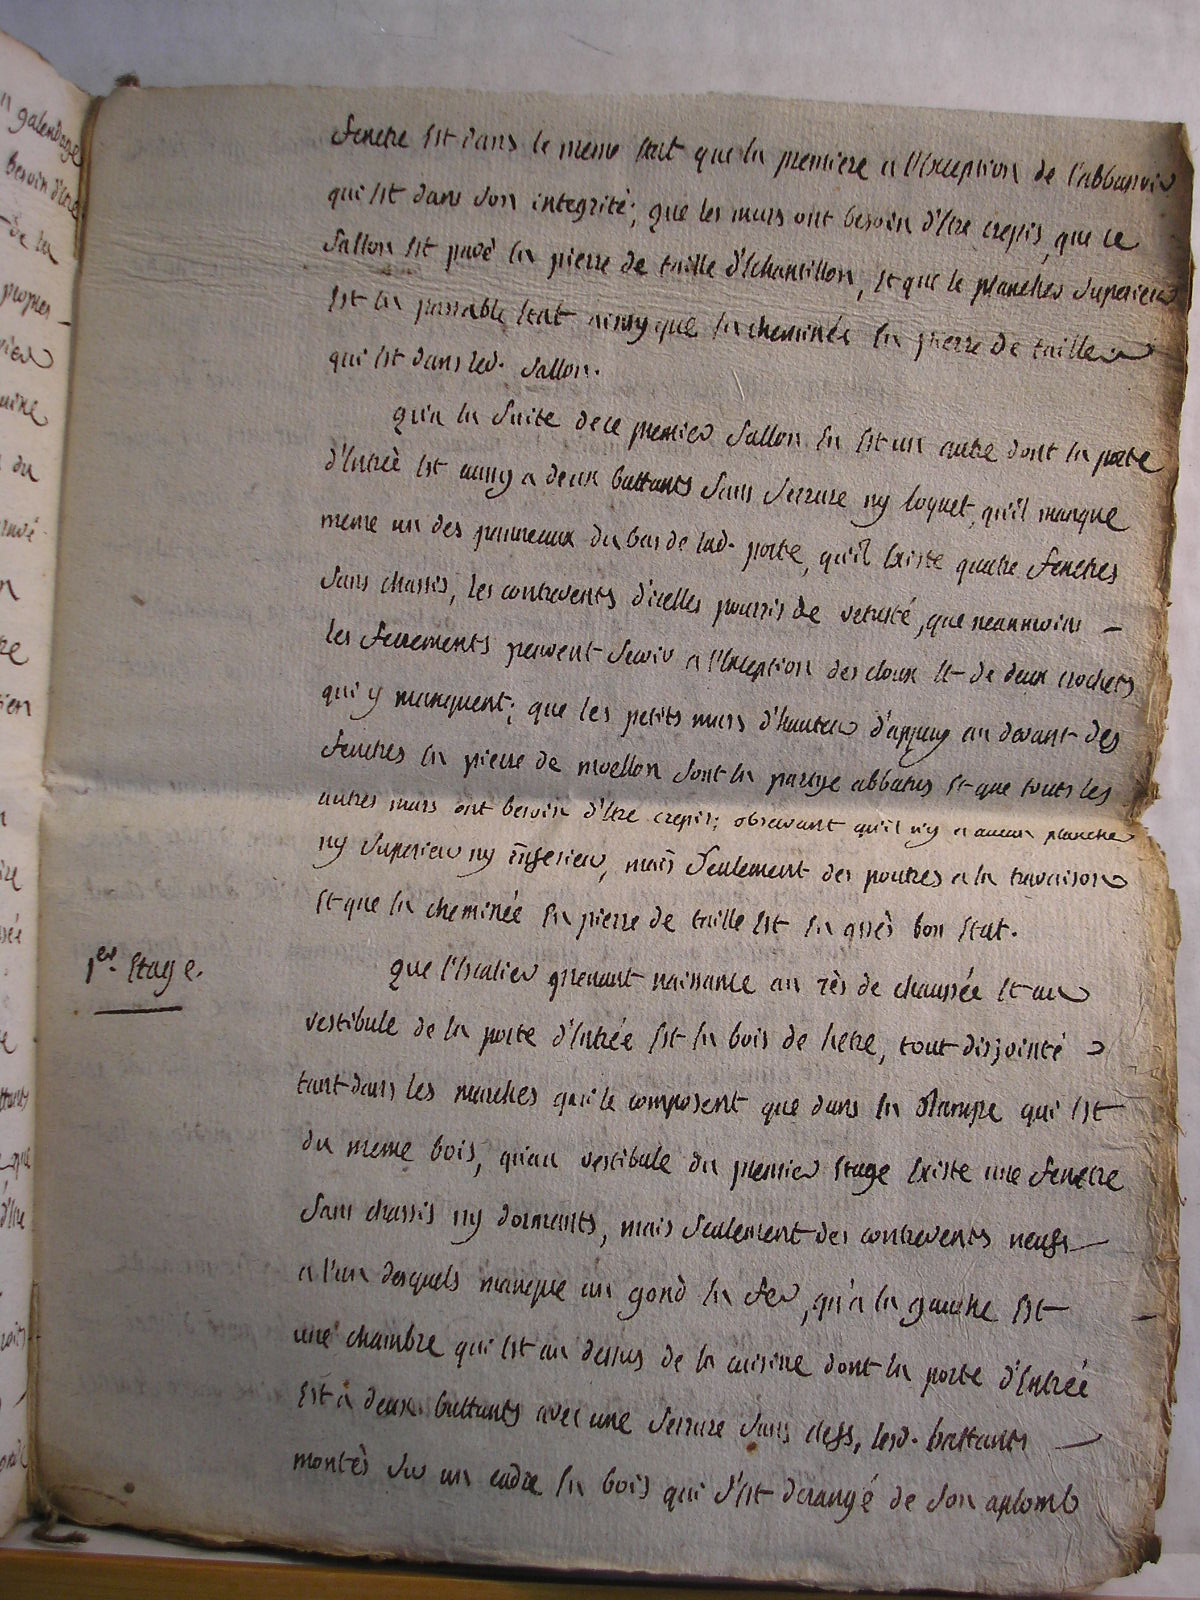 fenetre Est dans le meme Etat que la premiere a l'Exception de l'abbajour
qui Est dans son integrité; que les murs ont besoin d'Etre crepis, que ce
Sallon Est pavé En pierre de taille d'Echantillon, Et que le plancher Superieur
Est En passable Etat ainsy que la cheminée En pierre de taille
qui Est dans led. Sallon.
qu'a la Suite de ce premier Sallon En Est un autre dont la porte
d'Entreé Est aussy a deux battants Sans Serrure ny loquet, qu'il manque
meme un des panneaux du bas de lad. porte, qu'il Existe quatre fenetres
Sans chassis, les contrevents d'icelles pourris de vetusté, que neanmoins
les ferrements peuvent Servir a l'Exception des cloux Et de deux crochets
qui y manquent; que les petits murs d'hauteur d'appuy au devant des
fenetres En pierre de moellon Sont En partye abbatus Et que touts les
autres murs ont besoin d'Etre crepis; observant qu'il n'y a aucun plancher
ny Superieur ny inferieur, mais Seulement des poutres a la travaison
Et que la cheminée En pierre de taille Est En assès bon Etat.
1er. Etage.
Que l'Escalier prenant naissance au rès de chaussée Et au
vestibule de la porte d'Entrée Est En bois de hetre, tout disjointé
tant dans les marches qui le composent que dans la Rampe qui Est
du meme bois, qu'au vestibule du premier Etage Existe une fenetre
Sans chassis ny dormants, mais Seulement des contrevents neufs
a l'un desquels manque un gond En fer, qu'a la gauche Est
une chambre qui Est au dessus de la cuisine dont la porte d'Entreé
Est a deux battants avec une Serrure Sans clefs, lesd. battants
montès sur un cadre En bois qui S'Est derangé de Son aplomb
galendage
besoin d'Etre
de la
propres
du